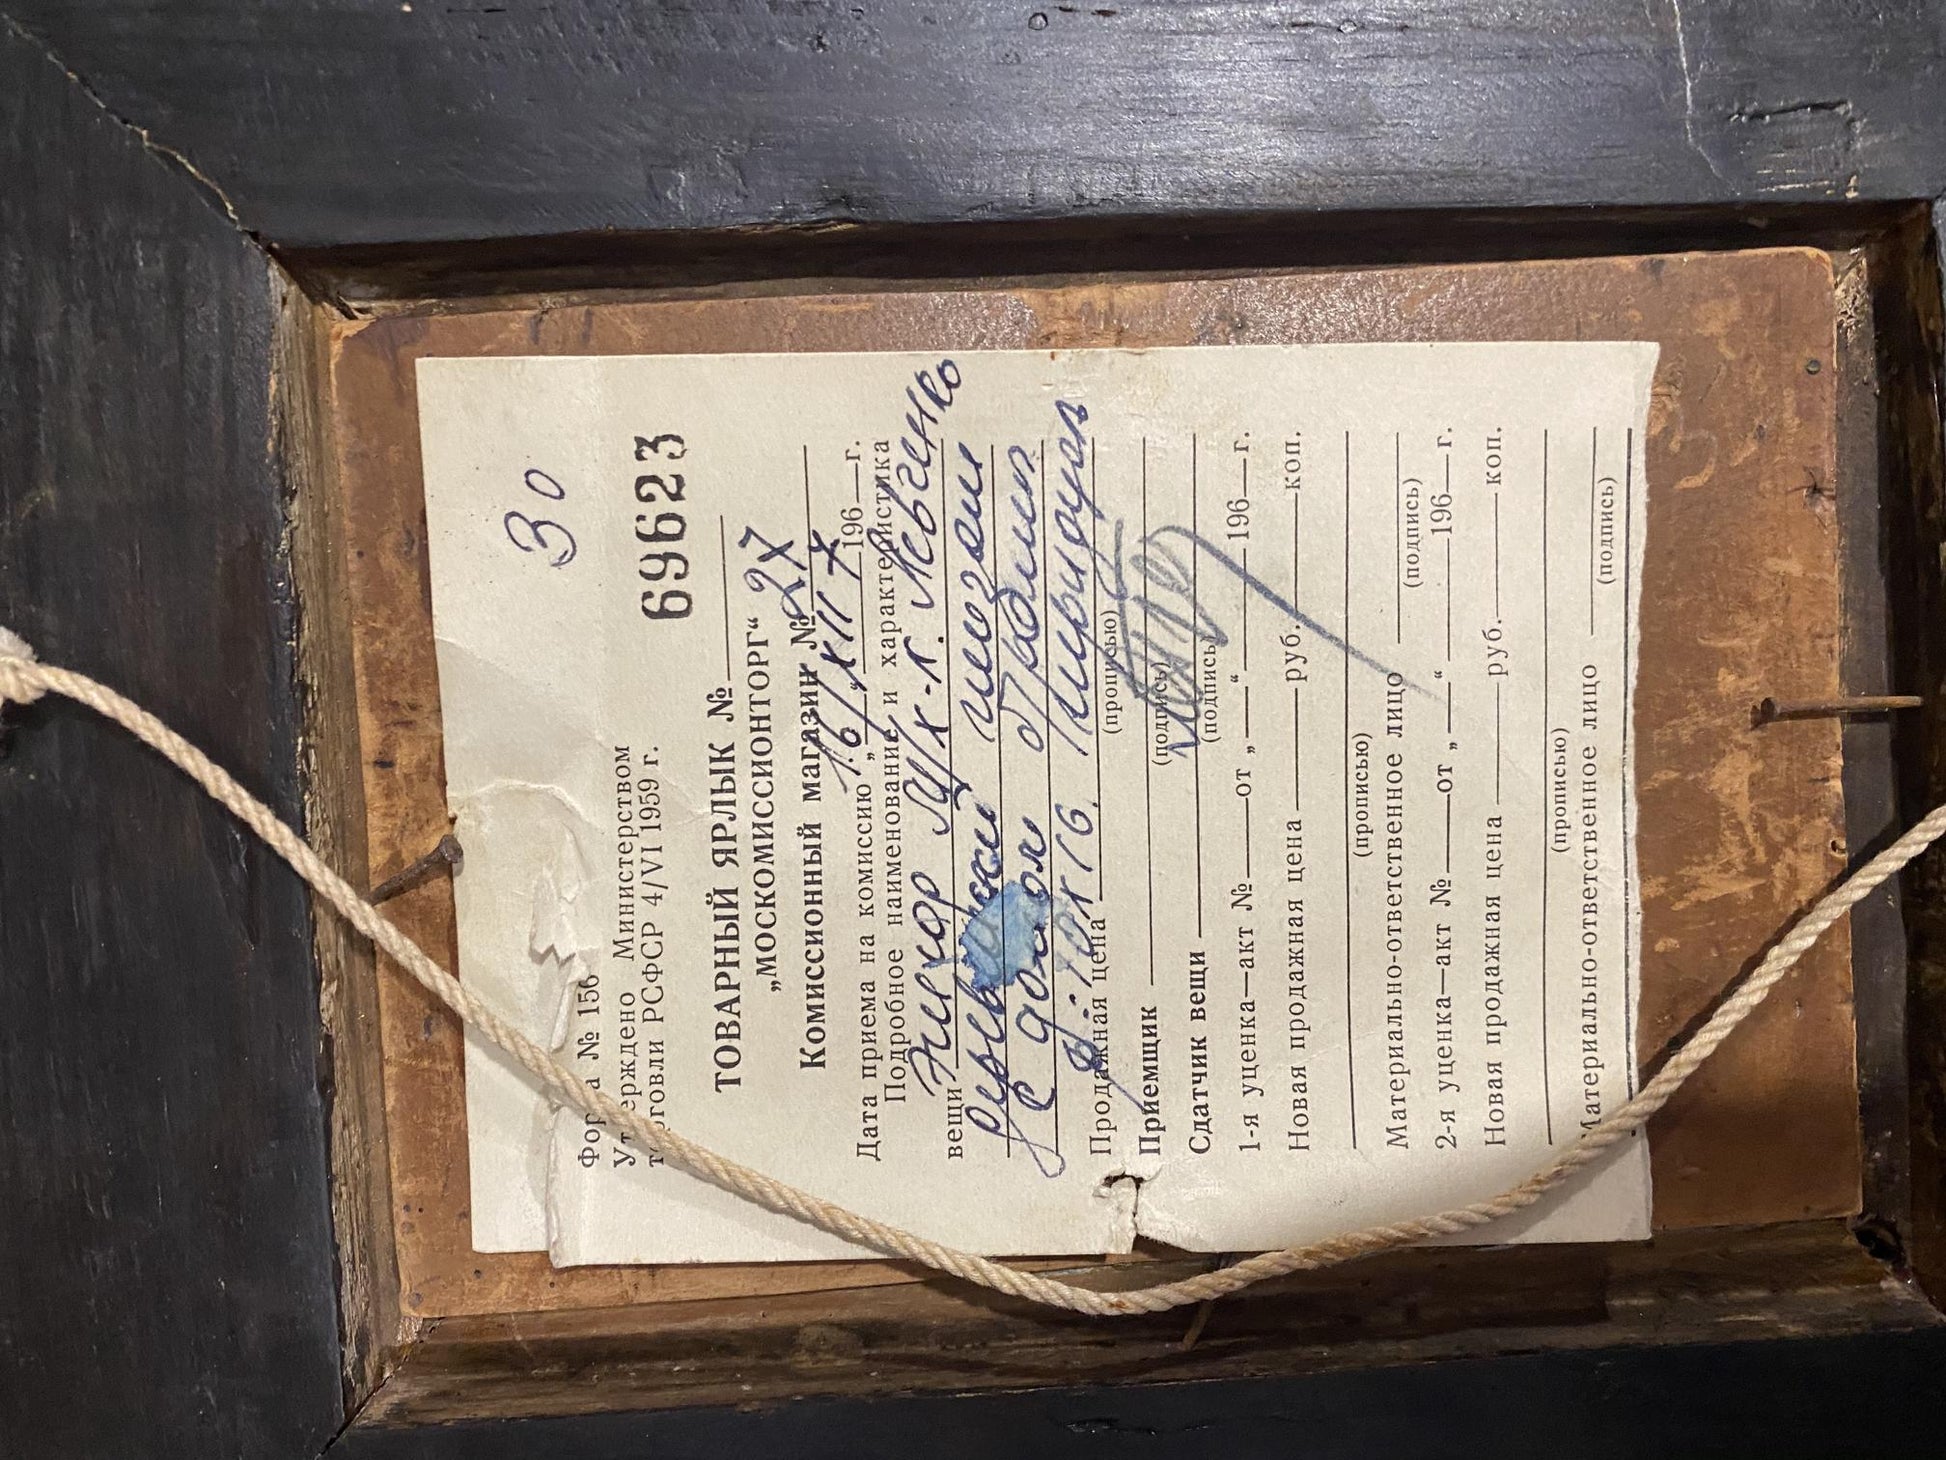 30
69623
Форма № 156
Утверждено Министерством
торговли РСФСР 4/VI 1959 г.
ТОВАРНЫЙ ЯРЛЫК №
„МОСКОМИССИОНТОРГ“
Комиссионный магазин № 27
Дата приема на комиссию „16/XII 196 7 г.
Подробное наименование и характеристика
вещи х-к. Левченко
пейзаж
с домом
10х16.
Продажная цена
(прописью)
Приемщик
(подпись)
Сдатчик вещи
(подпись)
1-я уценка—акт № —от „—“ 196—г.
Новая продажная цена —руб.—коп.
(прописью)
Материально-ответственное лицо
(подпись)
2-я уценка—акт № —от „—“ 196—г.
Новая продажная цена —руб.—коп.
(прописью)
Материально-ответственное лицо
(подпись)